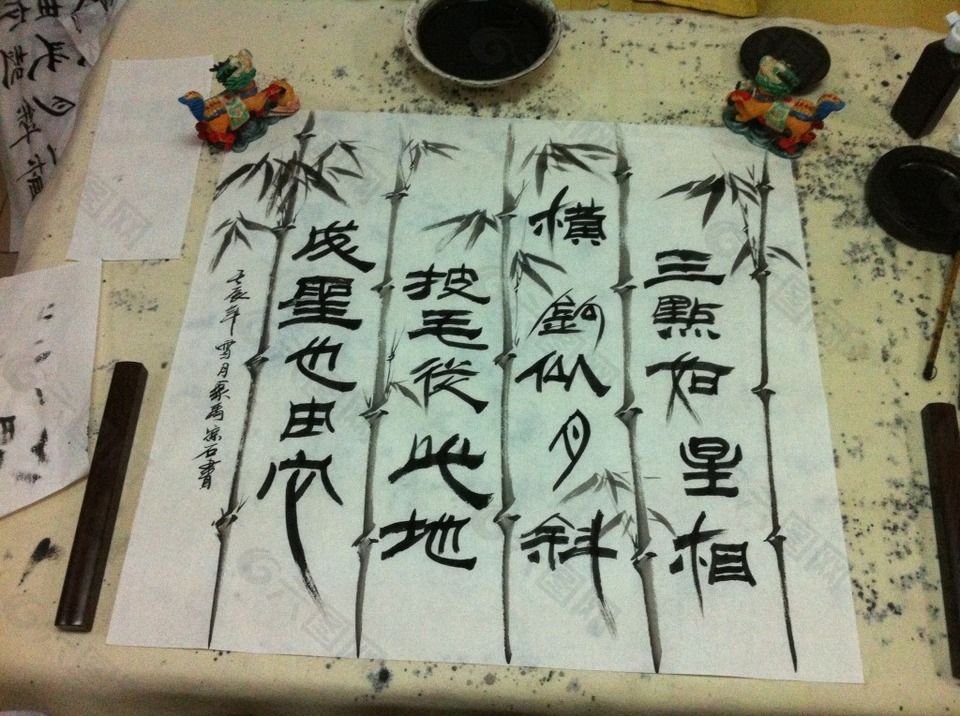 三點如星相
橫鉤似月斜
披毛從此地
成聖也由
壬辰年雪月 石書
六图网